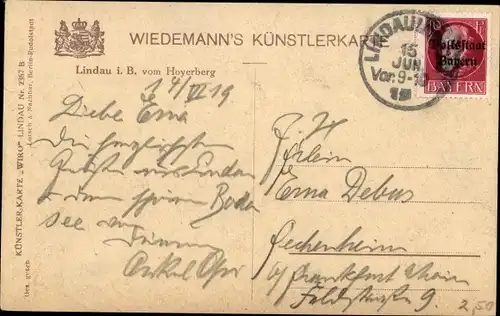 WIEDEMANN'S KÜNSTLERKARTE
Lindau i. B. vom Hoyerberg
14/VI 19
Liebe Erna
Die herzlichsten
Grüße aus Lindau
a. dem schönen Boden
see
Onkel
KÜNSTLER-KARTE „WIRO“ LINDAU Nr. 2367 B
Ges. gesch.
LINDAU
15
JUN.
Vor. 9-10
19
Volksstaat
Bayern
BAYERN
Frlein
Erna Debus
Fechenheim
b/ Frankfurt Main
Feldstraße 9.
2,50